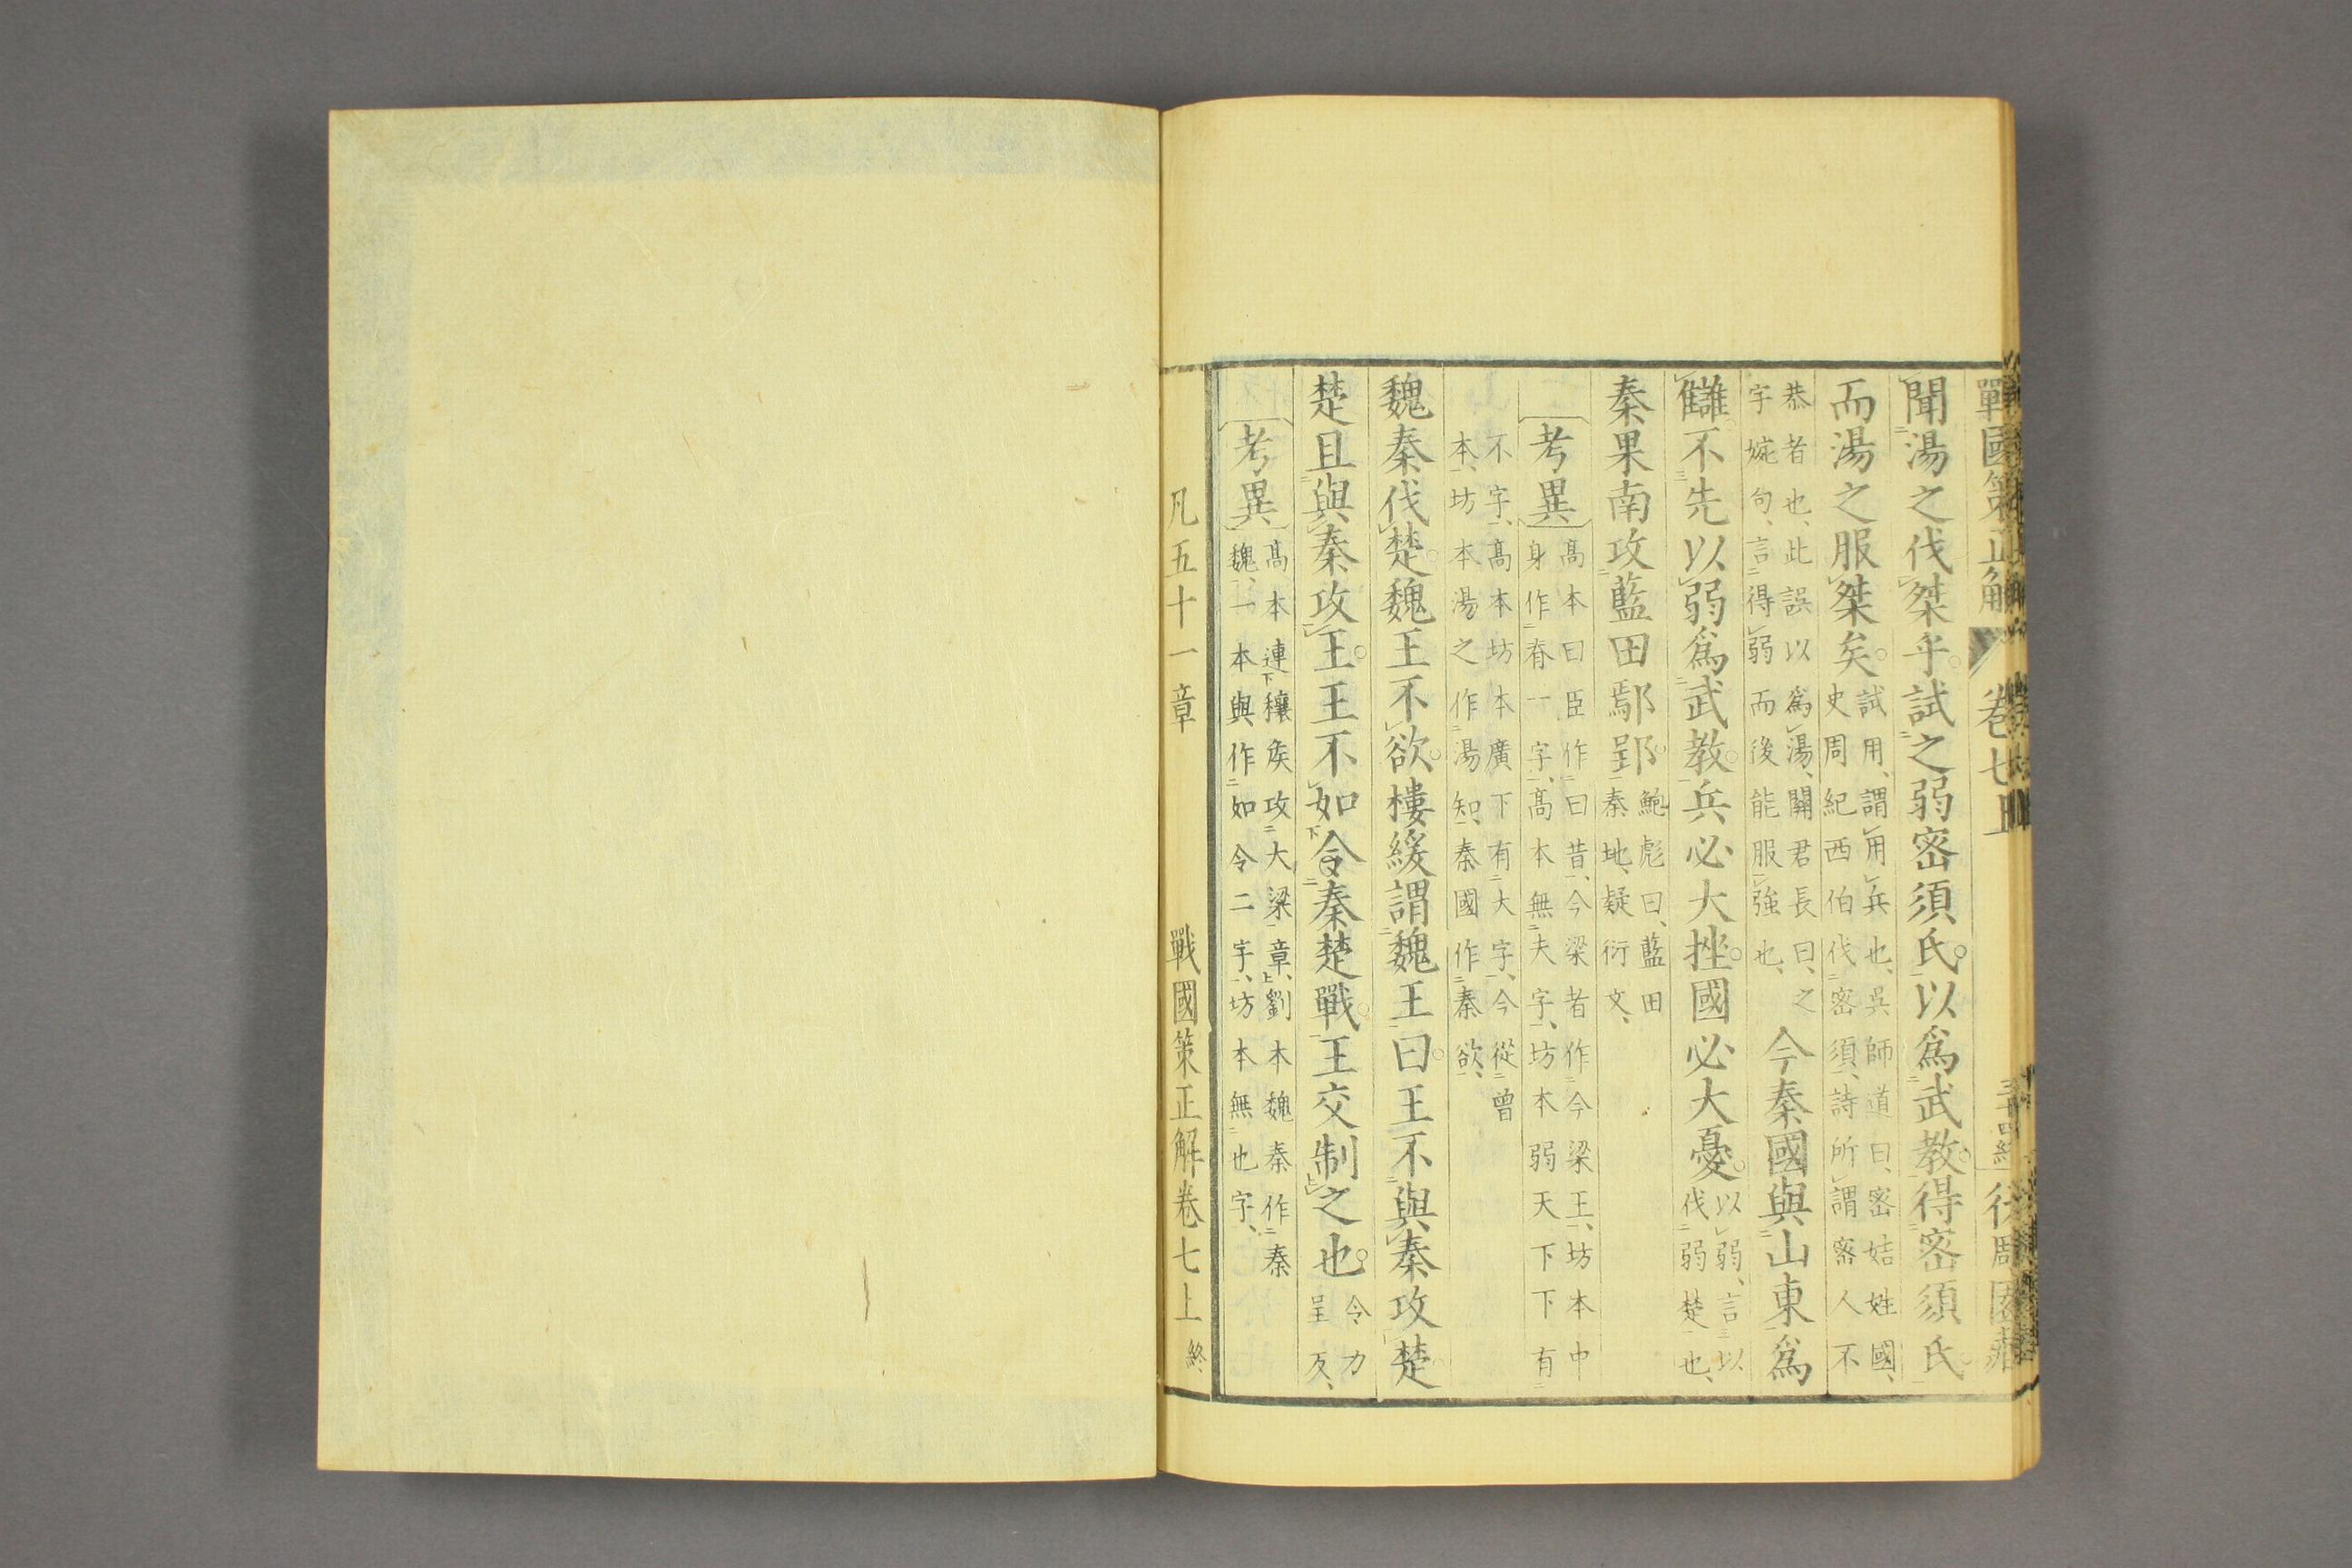 戰國策正解 卷七上 三十四終
聞湯之伐桀乎試之弱密須氏以爲武教得密須氏
而湯之服桀矣試用謂用兵也吳師道曰密姞姓國史周紀西伯伐密須詩所謂密人不
恭者也此誤以爲湯關君長曰之字婉句言得弱而後能服強也今秦國與山東爲
讎不先以弱爲武教兵必大挫國必大憂以弱言以伐弱楚也
秦果南攻藍田鄢郢鮑彪曰藍田秦地疑衍文
考異高本曰臣作曰昔今梁者作今梁王坊本中身作脊一字高本無夫字坊本弱天下下有
不字高本坊本廣下有大字今從曾本坊本湯之作湯知秦國作秦欲
魏秦伐楚魏王不欲樓緩謂魏王曰王不與秦攻楚
楚且與秦攻王王不如令秦楚戰王交制之也令力呈反
考異高本連下穰侯攻大梁章劉本魏秦作秦魏一本與作如令二字坊本無也字
凡五十一章 戰國策正解卷七上終